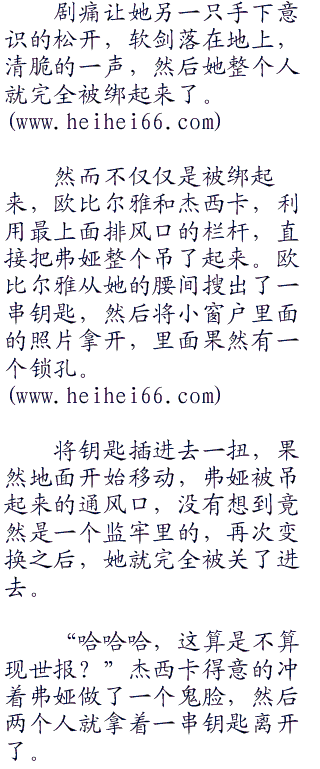 剧痛让她另一只手下意
识的松开，软剑落在地上，
清脆的一声，然后她整个人
就完全被绑起来了。
(www.heihei66.com)
然而不仅仅是被绑起
来，欧比尔雅和杰西卡，利
用最上面排风口的栏杆，直
接把弗娅整个吊了起来。欧
比尔雅从她的腰间搜出了一
串钥匙，然后将小窗户里面
的照片拿开，里面果然有一
个锁孔。
(www.heihei66.com)
将钥匙插进去一扭，果
然地面开始移动，弗娅被吊
起来的通风口，没有想到竟
然是一个监牢里的，再次变
换之后，她就完全被关了进
去。
“哈哈哈，这算是不算
现世报？”杰西卡得意的冲
着弗娅做了一个鬼脸，然后
两个人就拿着一串钥匙离开
了。